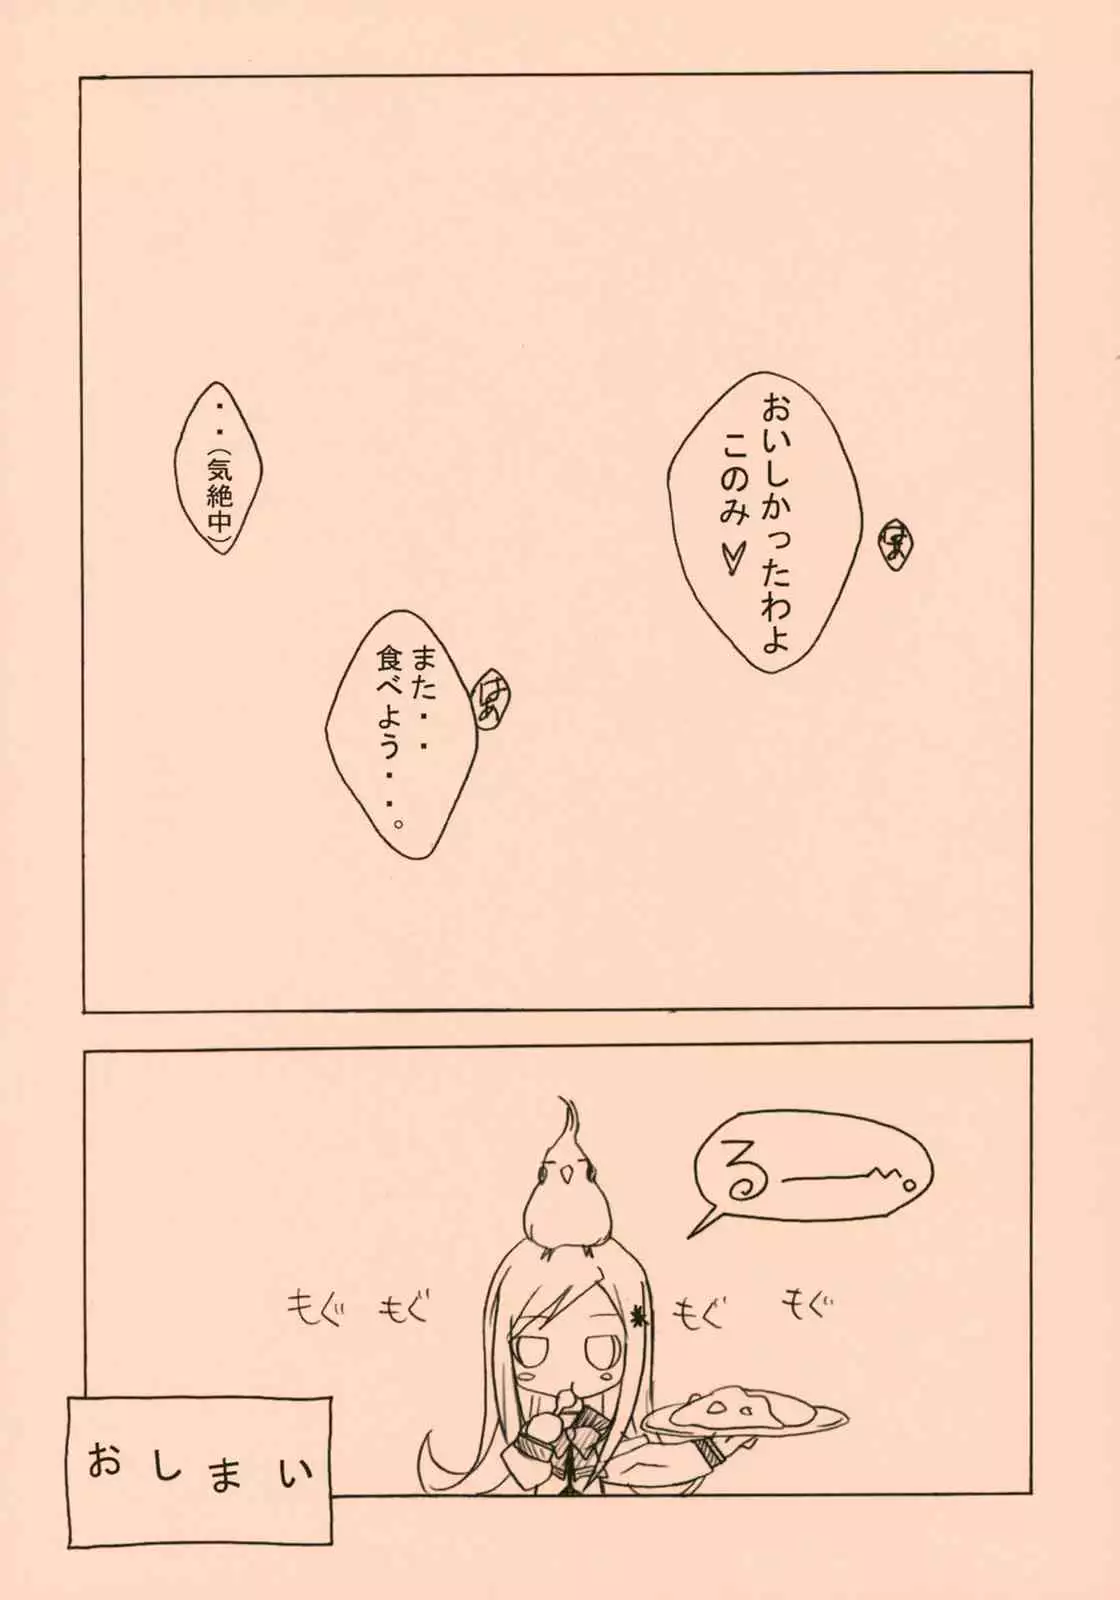 はぁ
おいしかったわよ
このみ♡
はぁ
また・・
食べよう・・・。
・・（気絶中）
るー――。
もぐ もぐ もぐ もぐ
おしまい